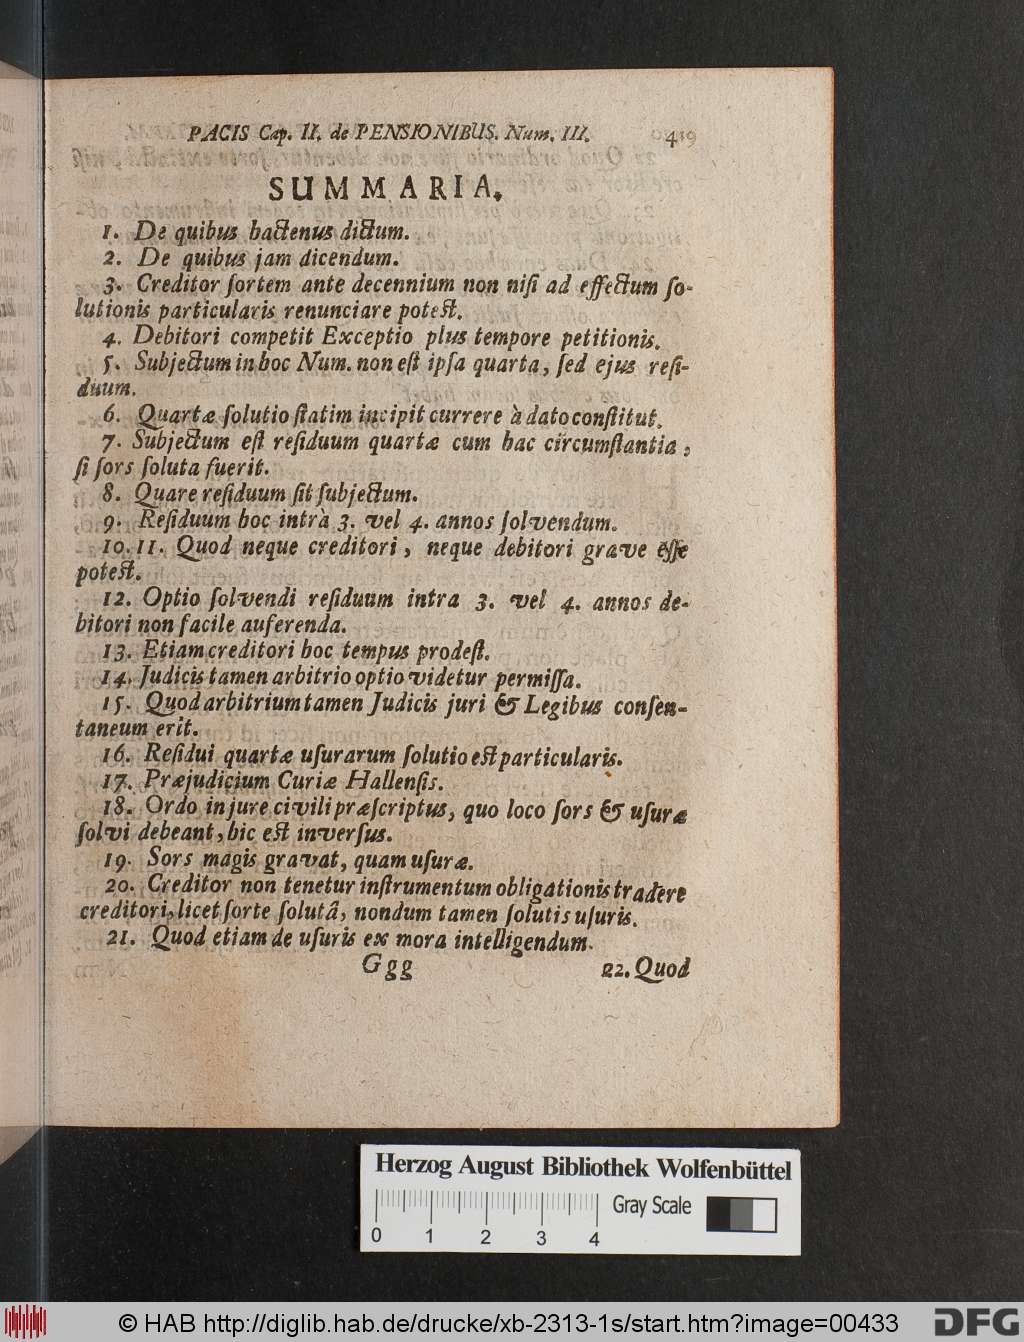 PACIS Cap. II. de PENSIONIBUS. Num. III. 419
SUMMARIA.
1. De quibus hactenus dictum.
2. De quibus jam dicendum.
3. Creditor ſortem ante decennium non niſi ad effectum ſo-
lutionis particularis renunciare potest.
4. Debitori competit Exceptio plus tempore petitionis.
5. Subjectum in hoc Num. non eſt ipſa quarta, ſed ejus reſi-
duum.
6. Quartæ ſolutio ſtatim incipit currere à dato conſtitut.
7. Subjectum eſt reſiduum quartæ cum hac circumſtantia,
ſi ſors ſoluta fuerit.
8. Quare reſiduum ſit ſubjectum.
9. Reſiduum hoc intrà 3. vel 4. annos ſolvendum.
10. 11. Quod neque creditori, neque debitori grave eſſe
potest.
12. Optio ſolvendi reſiduum intra 3. vel 4. annos de-
bitori non facile auferenda.
13. Etiam creditori hoc tempus prodeſt.
14. Judicis tamen arbitrio optio videtur permiſſa.
15. Quod arbitrium tamen Judicis juri & Legibus conſen-
taneum erit.
16. Reſidui quartæ uſurarum ſolutio est particularis.
17. Præjudicium Curiæ Hallenſis.
18. Ordo in jure civili præſcriptus, quo loco ſors & uſuræ
ſolvi debeant, hic est inverſus.
19. Sors magis gravat, quam uſuræ.
20. Creditor non tenetur inſtrumentum obligationis tradere
creditori, licet ſorte ſolutâ, nondum tamen ſolutis uſuris.
21. Quod etiam de uſuris ex mora intelligendum.
Ggg 22. Quod
Herzog August Bibliothek Wolfenbüttel
Gray Scale
0 1 2 3 4
© HAB http://diglib.hab.de/drucke/xb-2313-1s/start.htm?image=00433
DFG